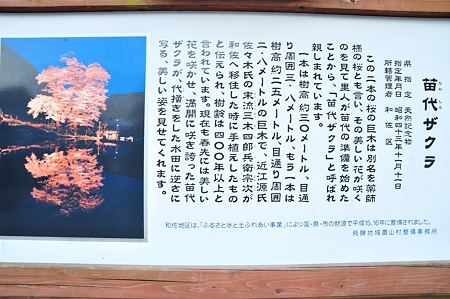 苗代ザクラ
県指定 天然記念物
指定年月日 昭和四十三年十一月十一日
所轄管理者 和佐区
この二本の桜の巨木は別名を薬師
様の桜とも言い、その美しい花が咲く
のを見て里人が苗代の準備を始めた
ことから、「苗代ザクラ」と呼ばれ
親しまれています。
一本は樹高約三〇メートル、目通
り周囲三・八メートル、もう一本は
樹高約二五メートル、目通り周囲
二・八メートルの巨木で、近江源氏
佐々木氏の末流三木四郎兵衛宗次が
和佐へ移住した時に手植えしたもの
と伝えられ、樹齢は四〇〇年以上と
言われています。現在も春先には美しい
花を咲かせ、満開に咲き誇った苗代
ザクラが、代掻きをした水田に逆さに
写る、美しい姿を見せてくれます。
和佐地区は、「ふるさと水と土ふれあい事業」により国・県・市の財源で平成15、16年に整備されました。
飛騨地域農山村整備事務所